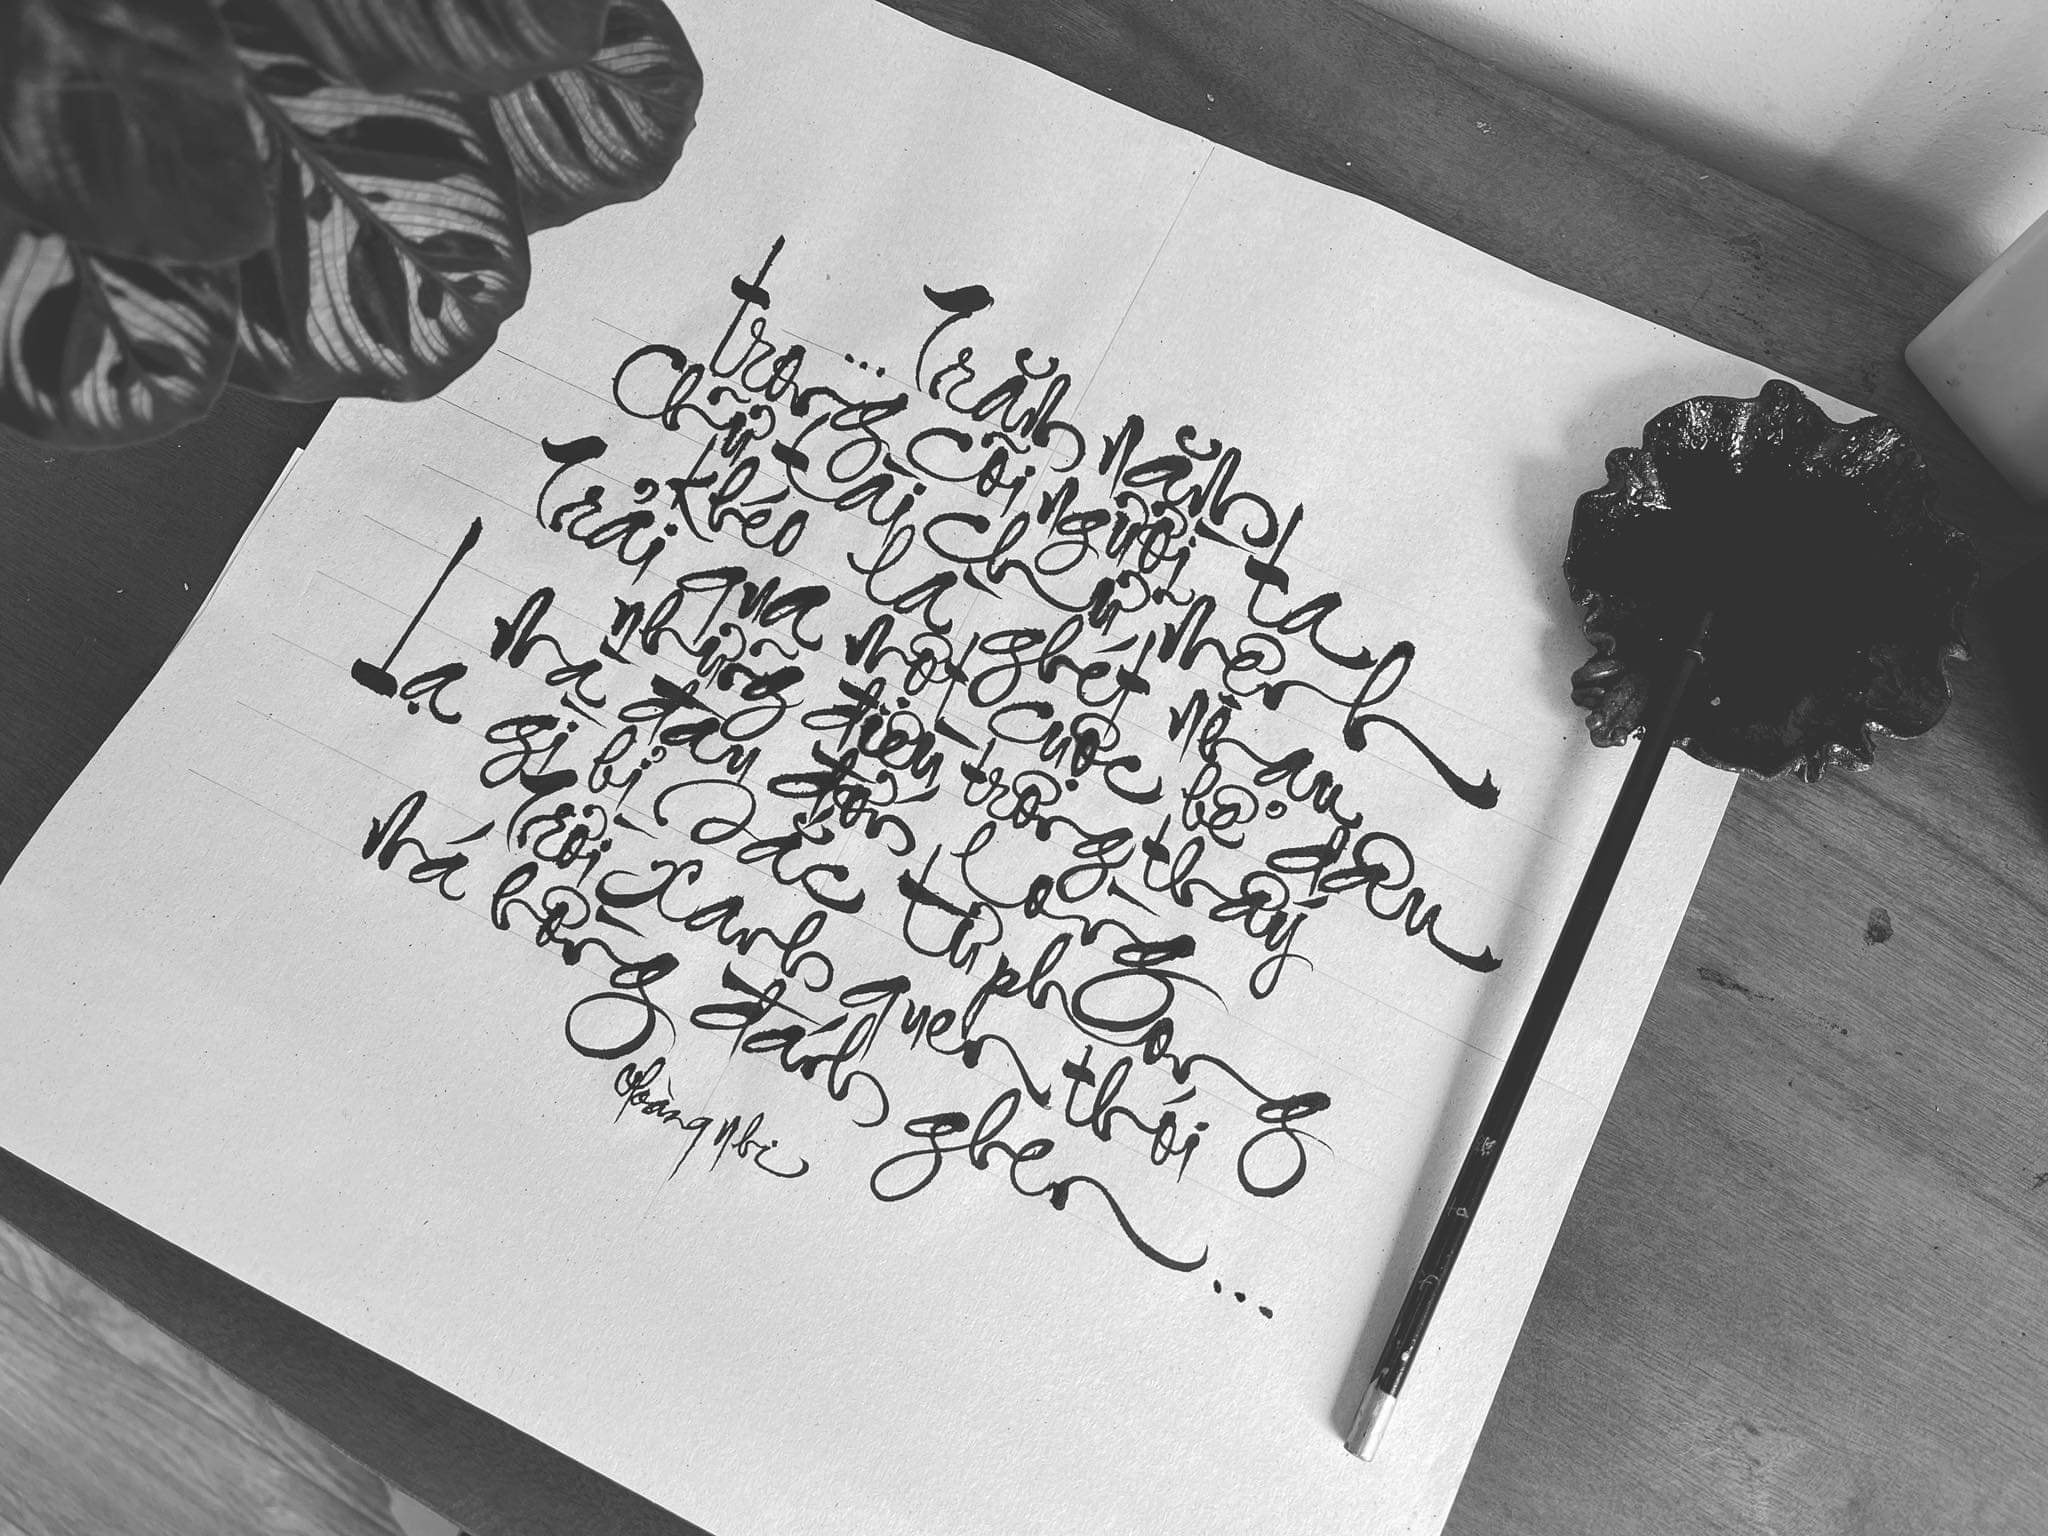 ... Trăm năm
trong cõi người ta
Chữ tài chữ mệnh
khéo là ghét nhau
Trải qua một cuộc bể dâu
những điều trông thấy
mà đau đớn lòng
Lạ gì bỉ sắc tư phong
Trời xanh quen thói
má hồng đánh ghen ...
Hoàng Nhi